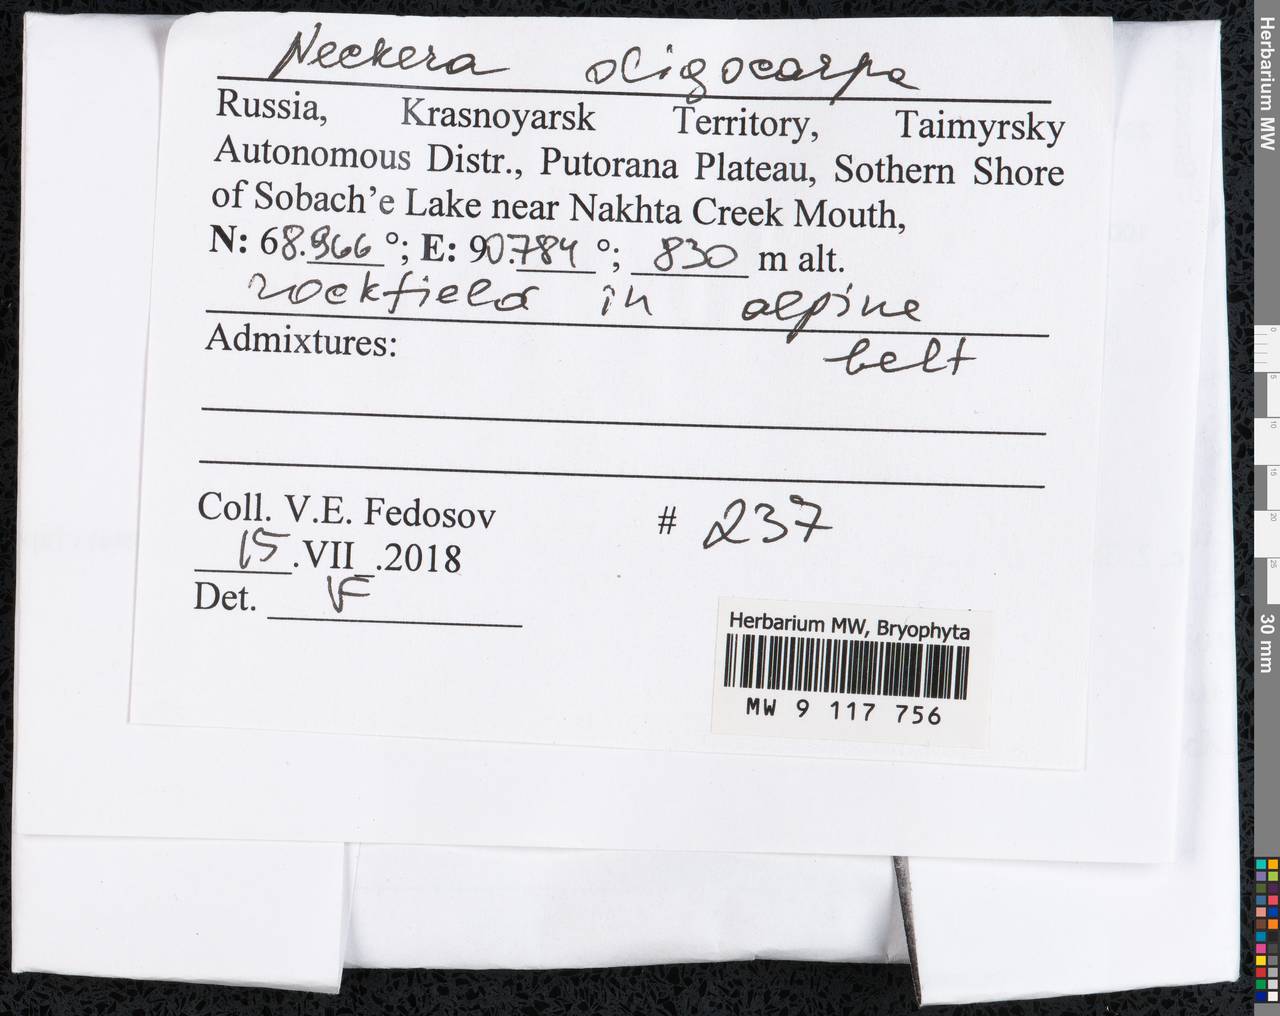 Neckera oligocarpa
Russia, Krasnoyarsk Territory, Taimyrsky
Autonomous Distr., Putorana Plateau, Sothern Shore
of Sobach’e Lake near Nakhta Creek Mouth,
N: 68.966 °; E: 90.784 °; 830 m alt.
rockfield in alpine
belt
Admixtures:
Coll. V.E. Fedosov # 237
15.VII_.2018
Det. VF
Herbarium MW, Bryophyta
MW 9 117 756
Herbarium MW
0
5
10
15
20
25
30 mm